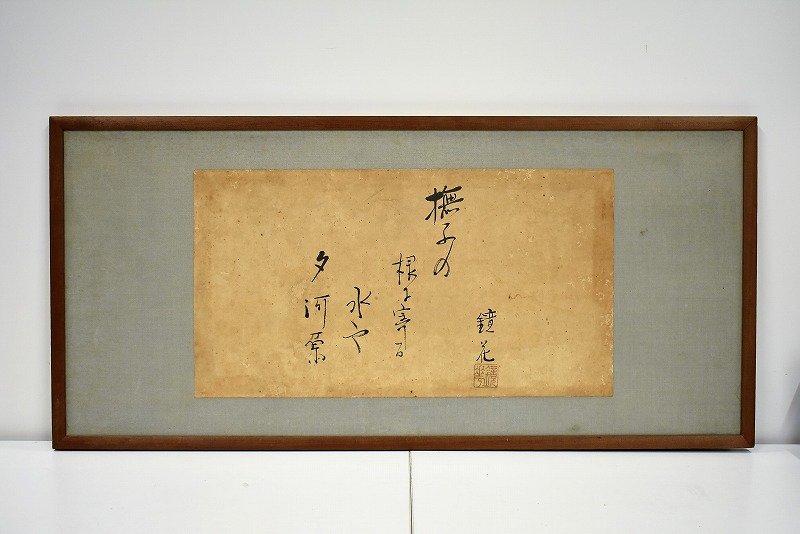 鏡花
撫子の
根に寄る
水や
夕河原